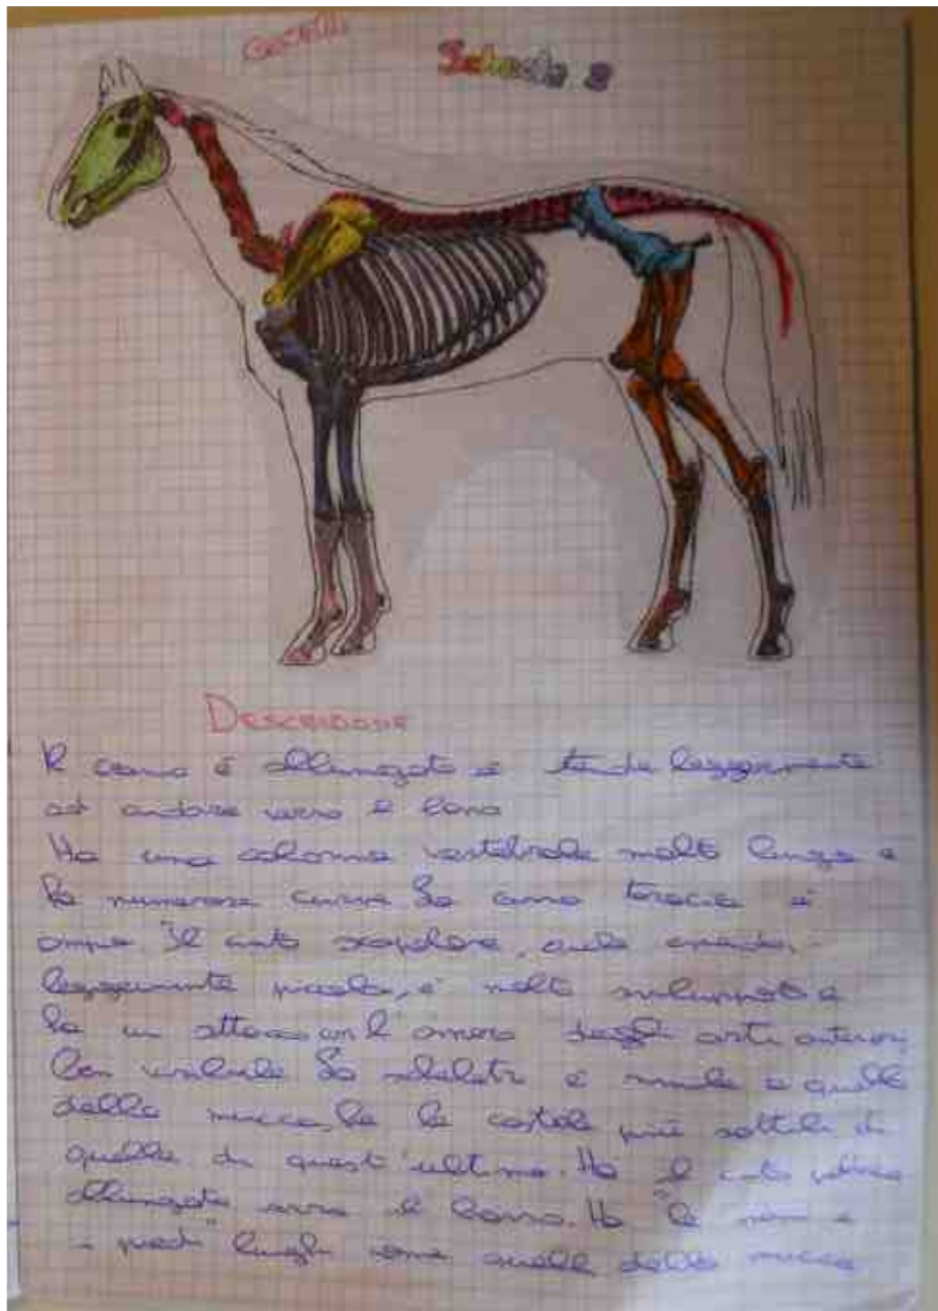 Scheda 8
DESCRIZIONE
Il cranio è allungato e tende leggermente
ad andare verso il basso
Ha una colonna vertebrale molto lunga e
ha numerose curve La cassa toracica è
ampia Il cinto scapolare,
leggermente piccolo, è molto sviluppato e
ha un attacco con l'omero degli arti anteriori
ben visibile Lo scheletro è simile a quello
della mucca, ha le costole più sottili di
quelle di quest'ultima. Ha il cinto pelvico
allungato verso il basso. Ha le "mani" e
i "piedi" lunghi come quelli della mucca